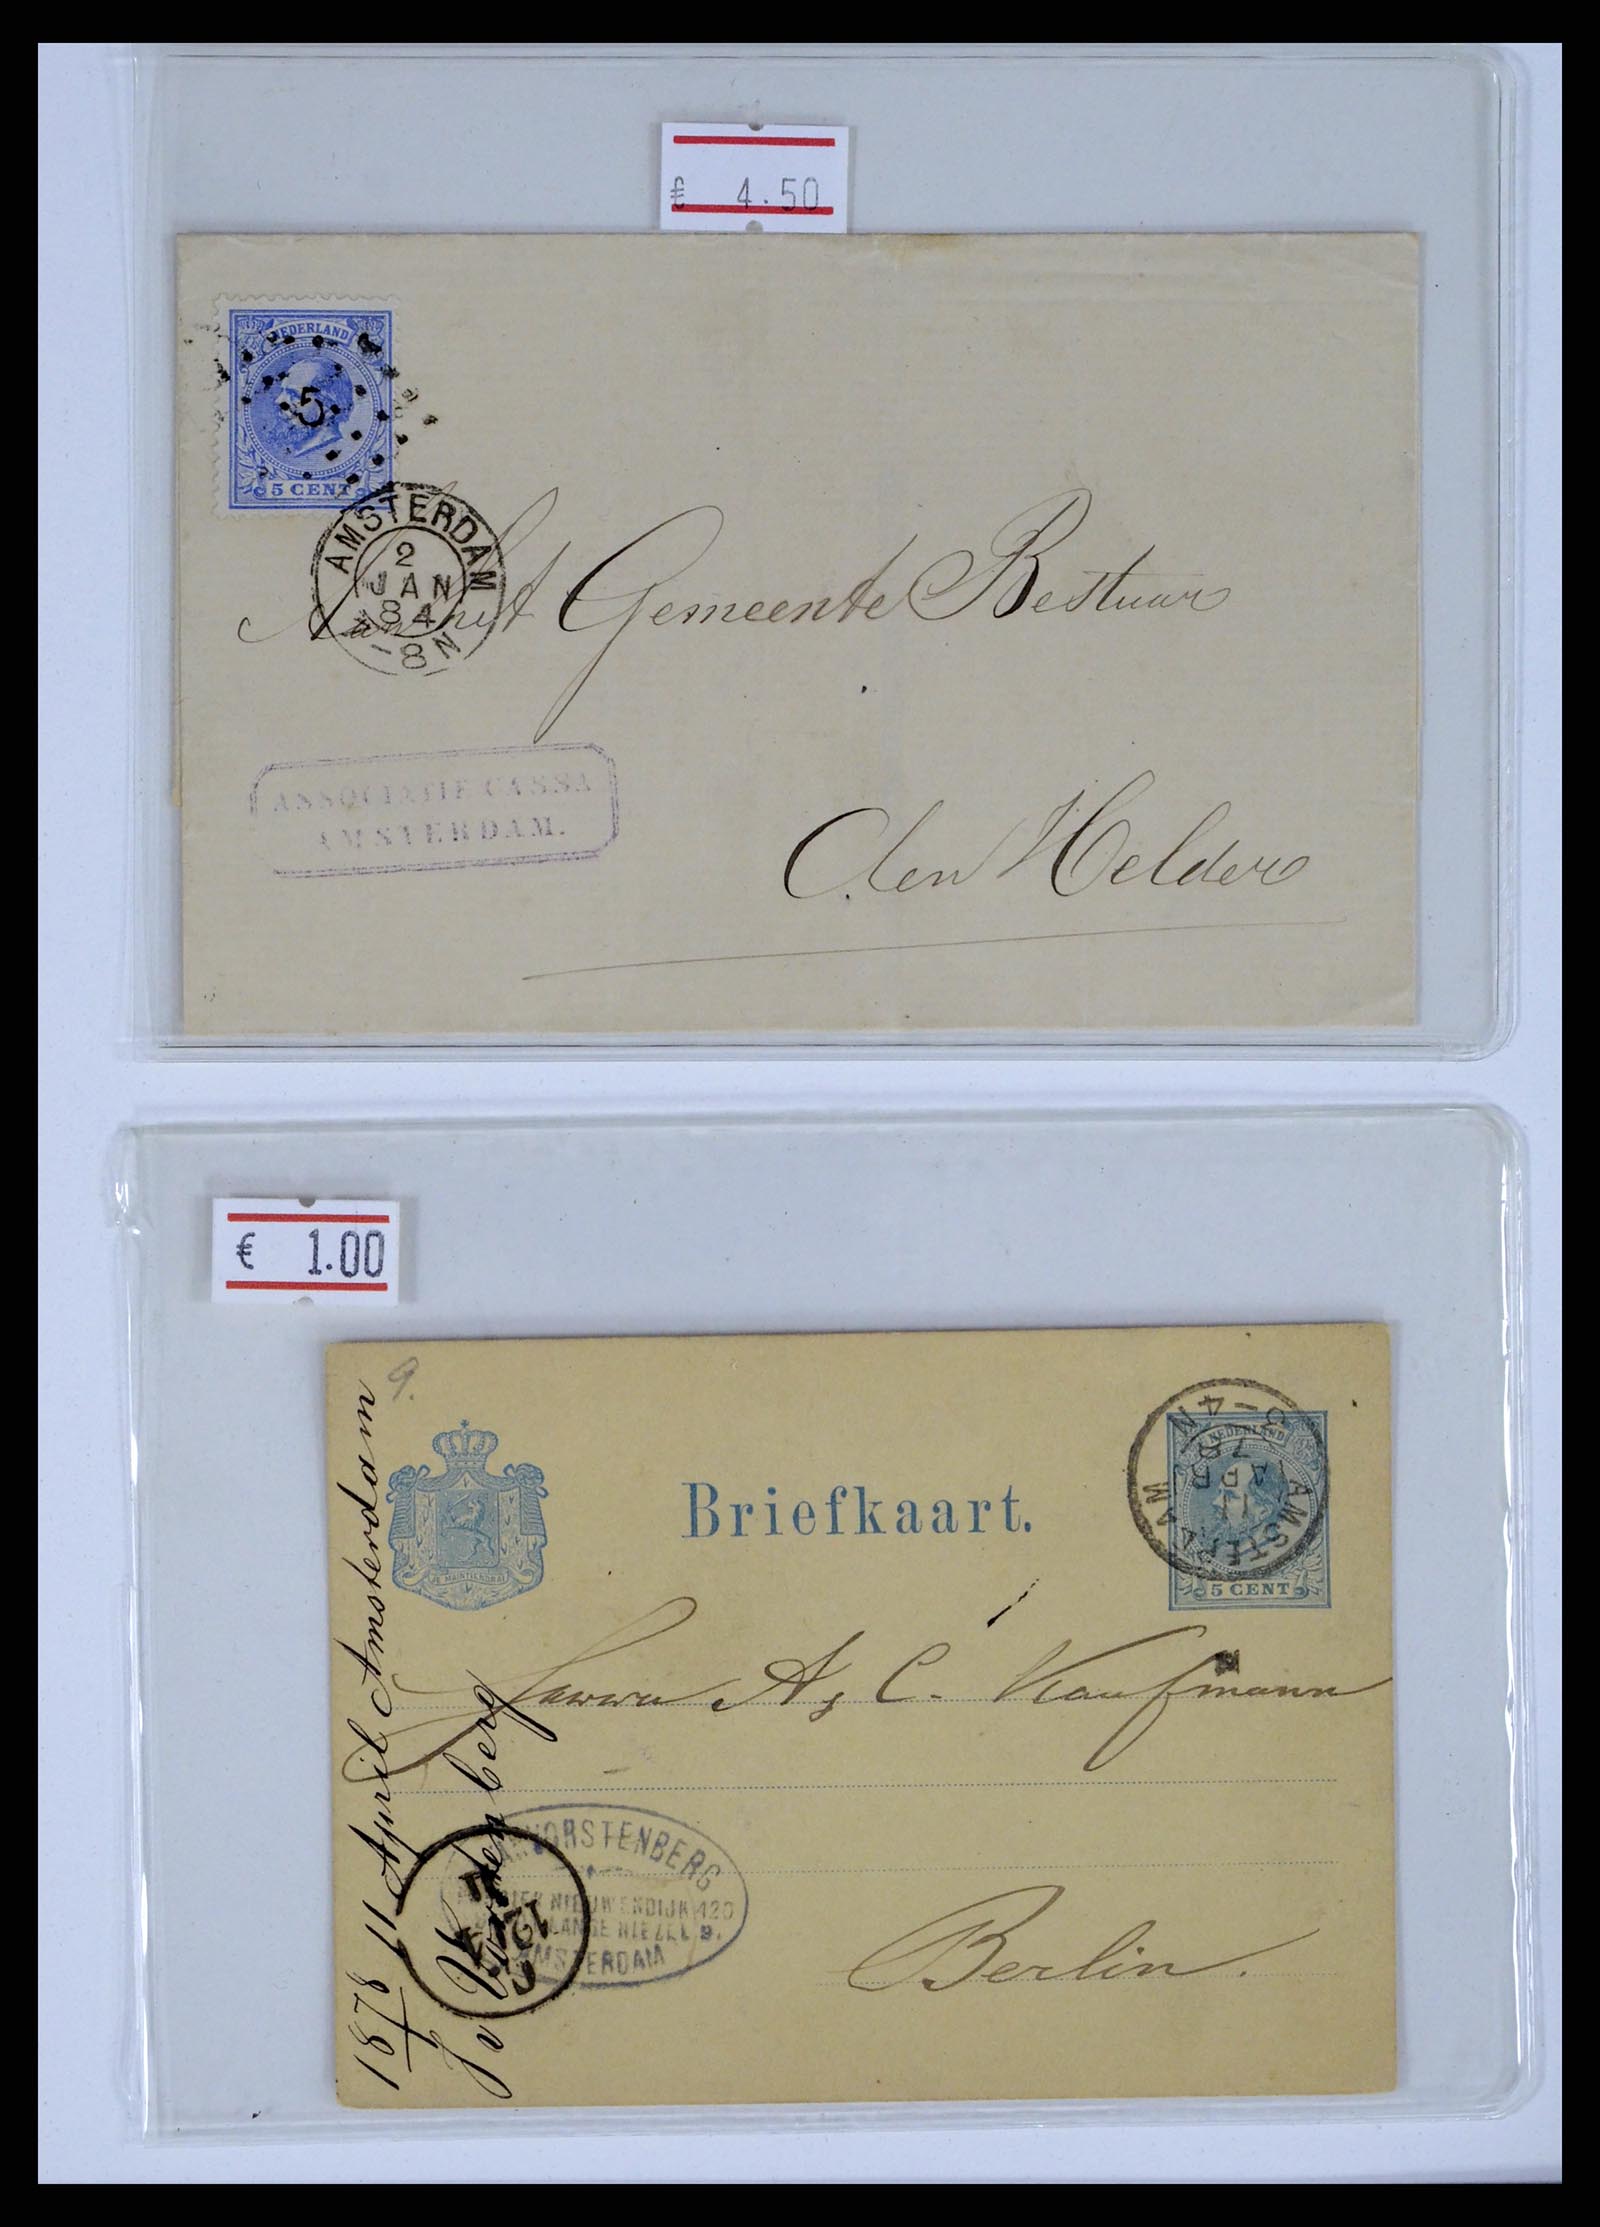 € 4.50
NEDERLAND
5
5 CENT
AMSTERDAM
2
JAN
84
-8N
Aan het Gemeente Bestuur
ASSOCIATIE CASSA
AMSTERDAM.
den Helder
€ 1.00
9.
Briefkaart.
NEDERLAND
5 CENT
AMSTERDAM
11
APR
78
3-4N
JE MAINTIENDRAI
Herren A. C. Kaufmann
Berlin.
1878 11 April Amsterdam
VORSTENBERG
NIEUWENDIJK 120
LANGE NIEZEL 9.
AMSTERDAM